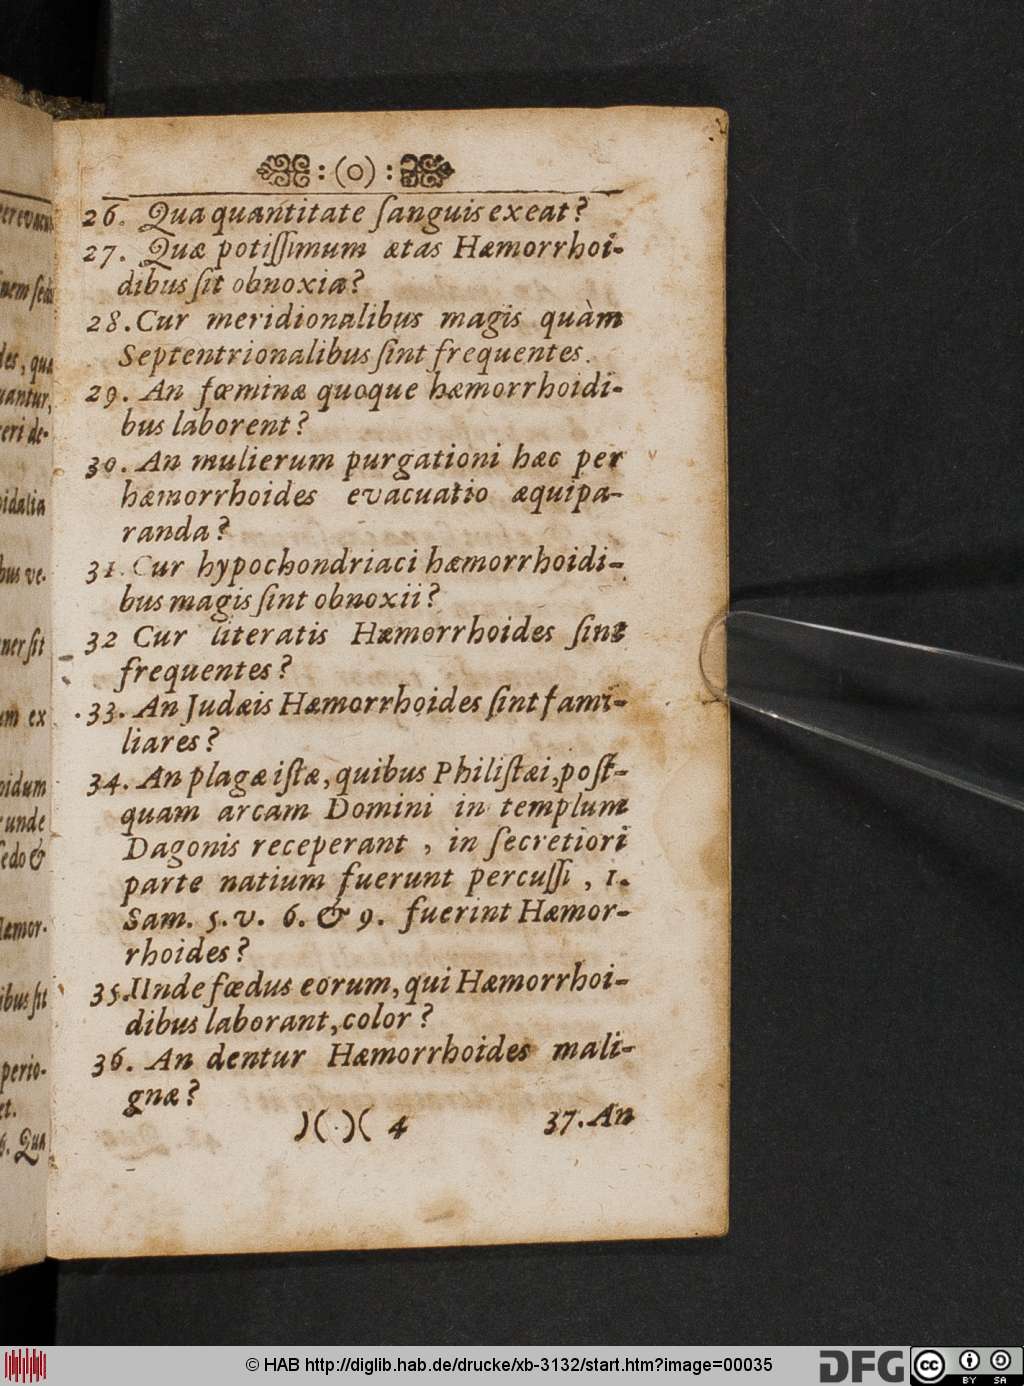 :(o):
26. Qua quantitate ſanguis exeat?
27. Quæ potiſſimum ætas Hæmorrhoi-
dibus ſit obnoxia?
28. Cur meridionalibus magis quàm
Septentrionalibus ſint frequentes.
29. An fœminæ quoque hæmorrhoidi-
bus laborent?
30. An mulierum purgationi hæc per
hæmorrhoides evacuatio æquipa-
randa?
31. Cur hypochondriaci hæmorrhoidi-
bus magis ſint obnoxii?
32 Cur literatis Hæmorrhoides ſint
frequentes?
33. An Judæis Hæmorrhoides ſint fami-
liares?
34. An plagæ iſtæ, quibus Philiſtæi, poſt-
quam arcam Domini in templum
Dagonis receperant, in ſecretiori
parte natium fuerunt percuſſi, 1.
Sam. 5. v. 6. & 9. fuerint Hæmor-
rhoides?
35. Unde fœdus eorum, qui Hæmorrhoi-
dibus laborant, color?
36. An dentur Hæmorrhoides mali-
gnæ?
)( . )( 4 37. An
ſit
um ex
unde
ſedo &
perio-
6. Qua
© HAB http://diglib.hab.de/drucke/xb-3132/start.htm?image=00035
DFG
cc BY SA